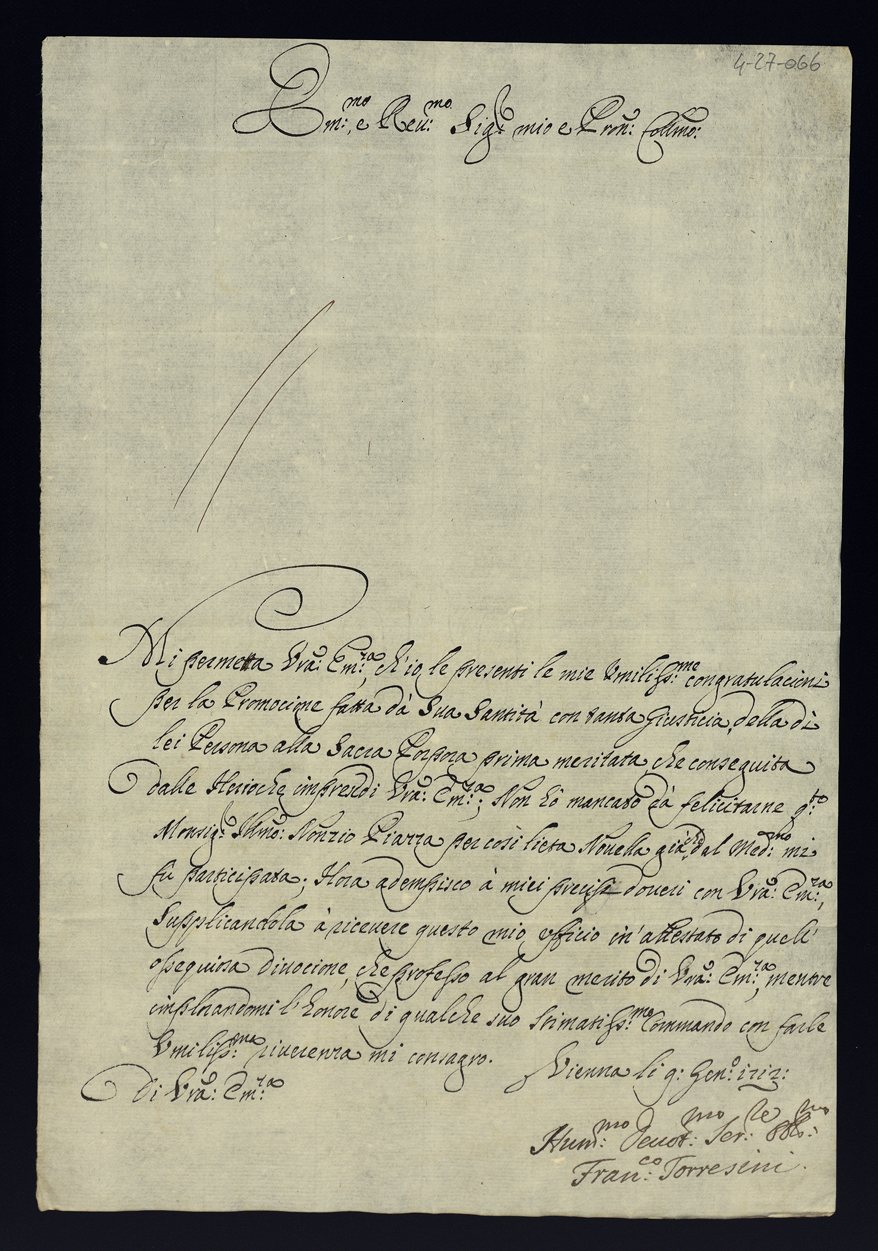 4-27-066
Em:mo, e Reu:mo Sig:r mio e Pron: Collmo:
Mi permetta Vra: Em:za, ch'io le presenti le mie Vmiliss:me congratulacioni
per la Promocione fatta dà Sua Santità con tanta Giusticia, della di
lei Persona alla Sacra Porpora prima meritata, che conseguita
dalle Heroiche imprese di Vra: Em:za; Non hò mancato dà felicitarne q:to
Monsig:r Illmo: Nonzio Piazza per così lieta Nouella già dal Med:mo mi
fù participata; Hora adempisco à miei precisi doueri con Vra: Em:za,
Supplicandola à riceuere questo mio officio in'attestato di quell'
ossequiosa diuocione, che professo al gran merito di Vra: Em:za, mentre
implorandomi l'honore di qualche suo stimatiss:mo Commando con farle
Vmiliss:ma riuerenza mi consagro.
Di Vra: Em:za
Vienna li 9: Gen:o 1712:
Hum:mo Deuot:mo Ser:re
Fran:co Torresini.